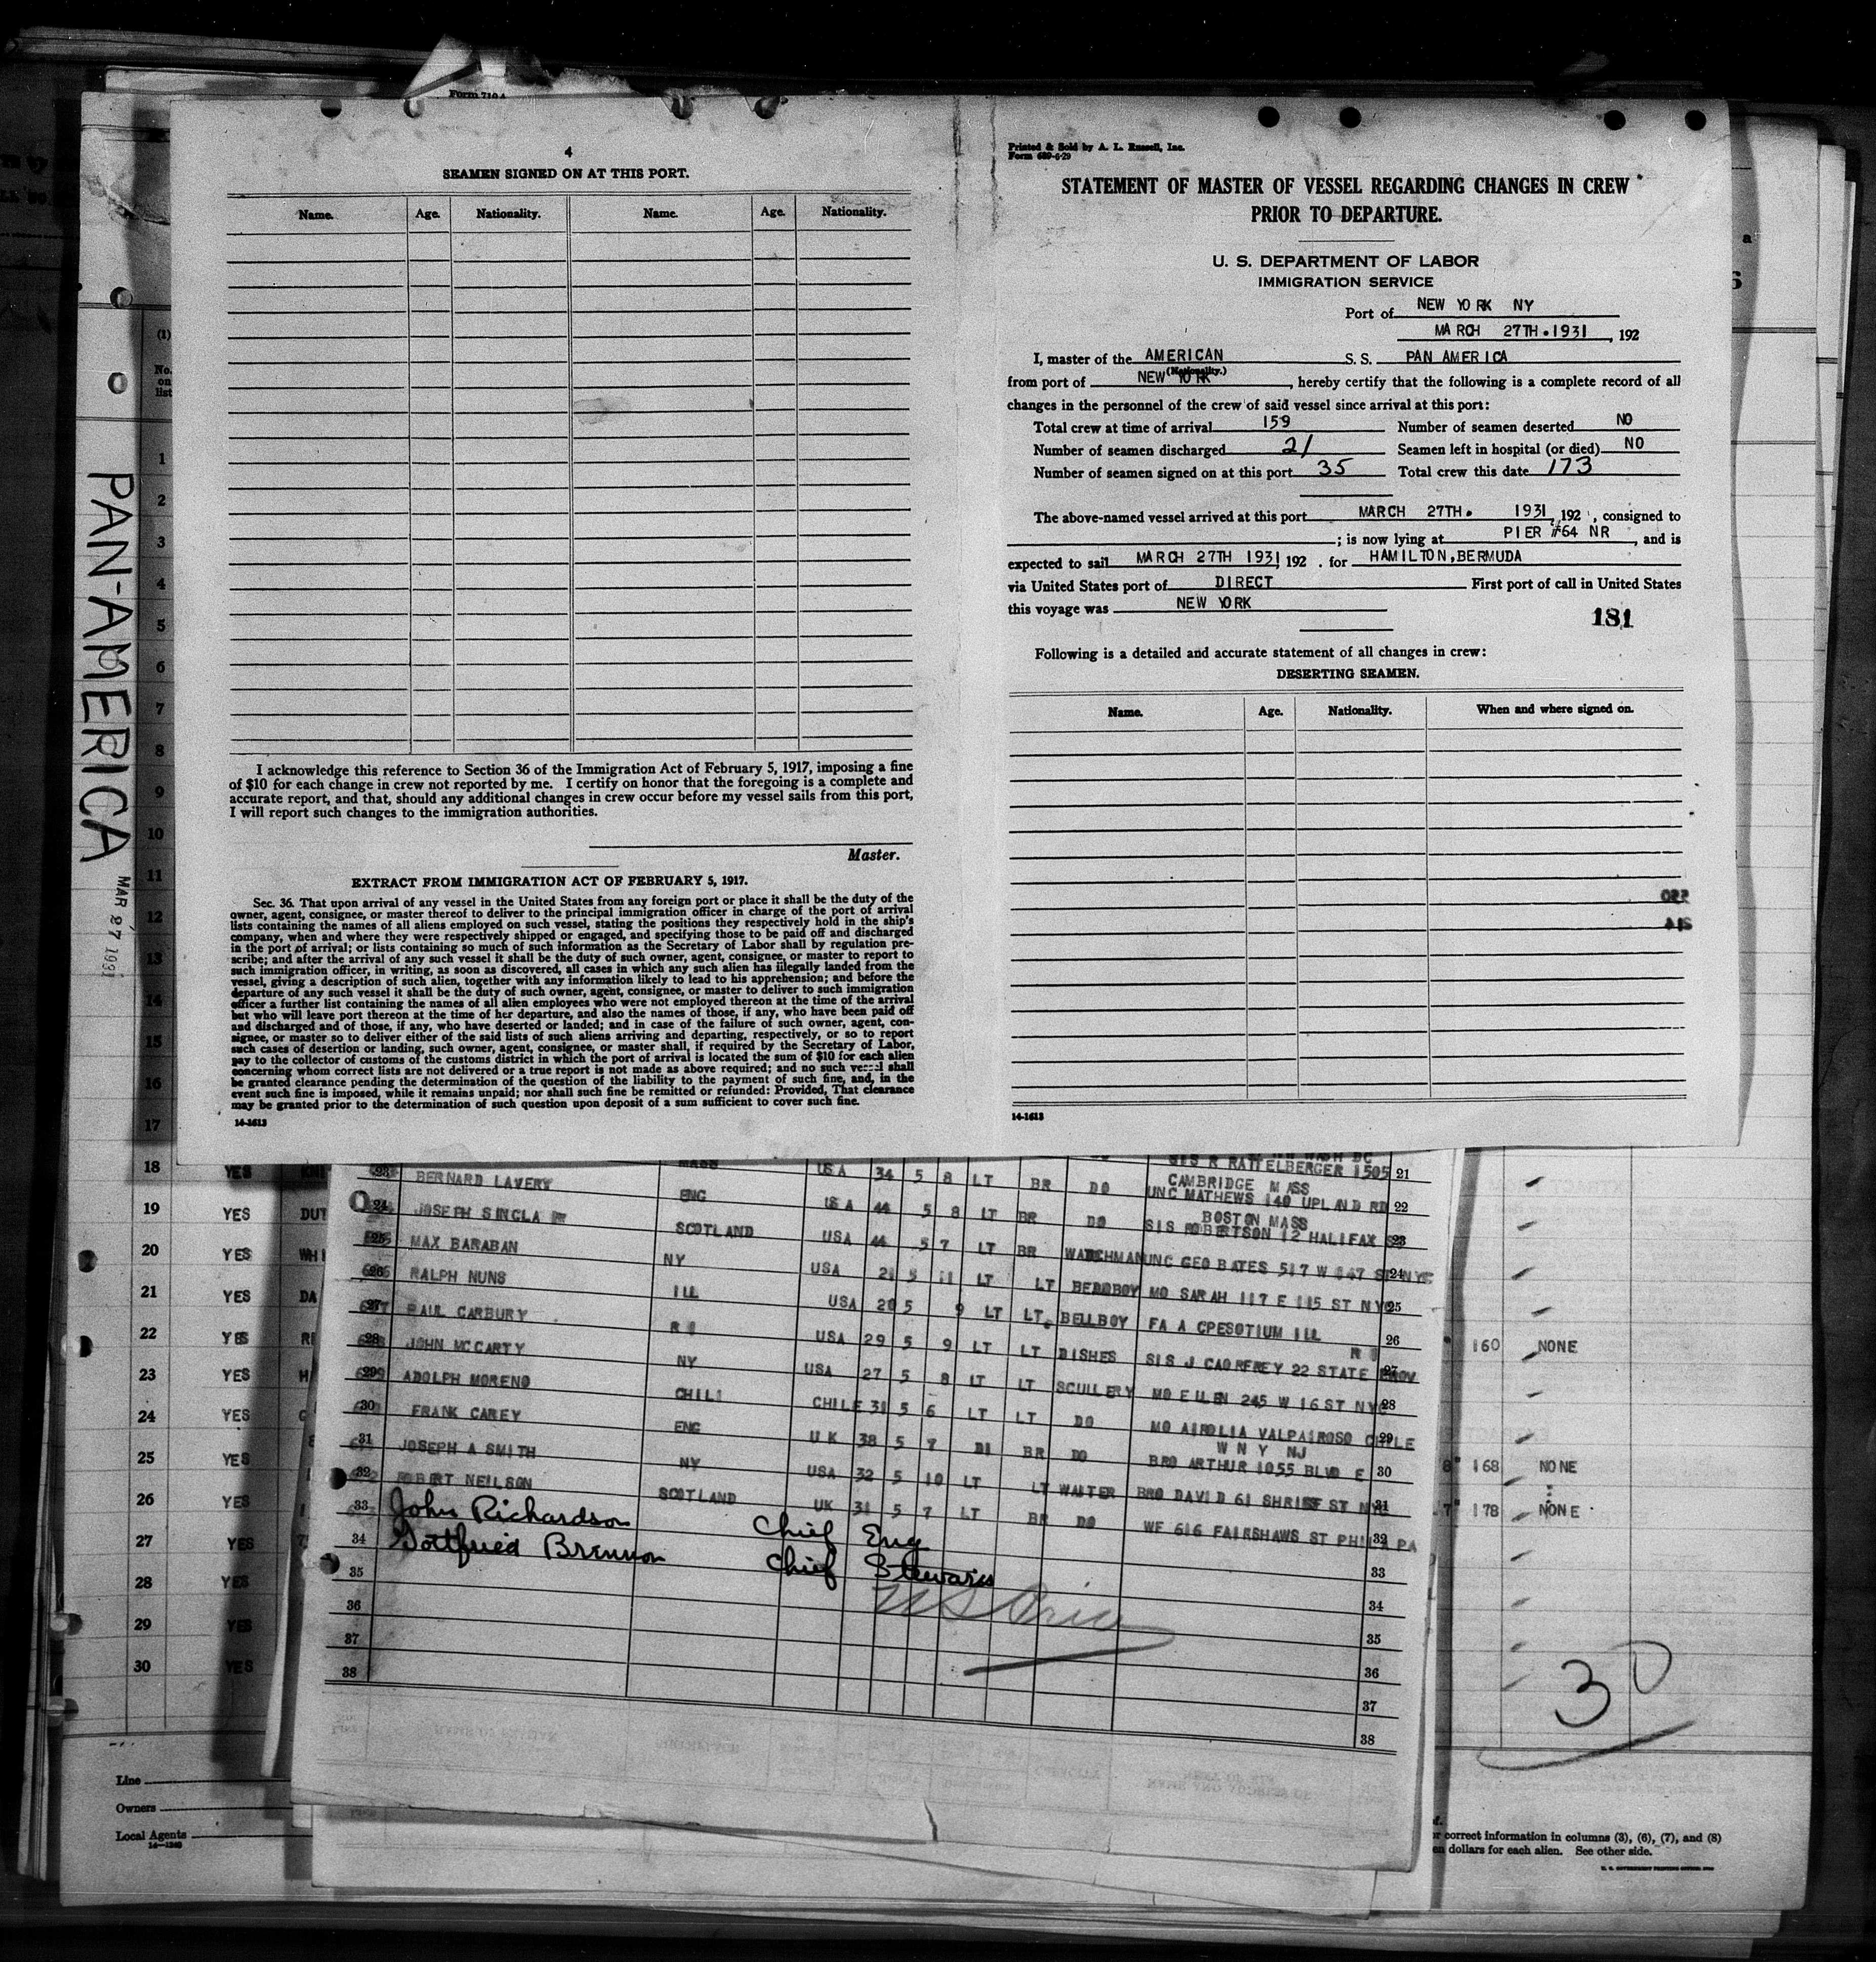 Form 710A
4
SEAMEN SIGNED ON AT THIS PORT.
Name. Age. Nationality. Name. Age. Nationality.
I acknowledge this reference to Section 36 of the Immigration Act of February 5, 1917, imposing a fine
of $10 for each change in crew not reported by me. I certify on honor that the foregoing is a complete and
accurate report, and that, should any additional changes in crew occur before my vessel sails from this port,
I will report such changes to the immigration authorities.
Master.
EXTRACT FROM IMMIGRATION ACT OF FEBRUARY 5, 1917.
Sec. 36. That upon arrival of any vessel in the United States from any foreign port or place it shall be the duty of the
owner, agent, consignee, or master thereof to deliver to the principal immigration officer in charge of the port of arrival
lists containing the names of all aliens employed on such vessel, stating the positions they respectively hold in the ship's
company, when and where they were respectively shipped or engaged, and specifying those to be paid off and discharged
in the port of arrival; or lists containing so much of such information as the Secretary of Labor shall by regulation pre-
scribe; and after the arrival of any such vessel it shall be the duty of such owner, agent, consignee, or master to report to
such immigration officer, in writing, as soon as discovered, all cases in which any such alien has illegally landed from the
vessel, giving a description of such alien, together with any information likely to lead to his apprehension; and before the
departure of any such vessel it shall be the duty of such owner, agent, consignee, or master to deliver to such immigration
officer a further list containing the names of all alien employees who were not employed thereon at the time of the arrival
but who will leave port thereon at the time of her departure, and also the names of those, if any, who have been paid off
and discharged and of those, if any, who have deserted or landed; and in case of the failure of such owner, agent, con-
signee, or master so to deliver either of the said lists of such aliens arriving and departing, respectively, or so to report
such cases of desertion or landing, such owner, agent, consignee, or master shall, if required by the Secretary of Labor,
pay to the collector of customs of the customs district in which the port of arrival is located the sum of $10 for each alien
concerning whom correct lists are not delivered or a true report is not made as above required; and no such vessel shall
be granted clearance pending the determination of the question of the liability to the payment of such fine, and, in the
event such fine is imposed, while it remains unpaid; nor shall such fine be remitted or refunded: Provided, That clearance
may be granted prior to the determination of such question upon deposit of a sum sufficient to cover such fine.
14-1613
Printed & Sold by A. L. Russell, Inc.
Form 689-6-29
STATEMENT OF MASTER OF VESSEL REGARDING CHANGES IN CREW
PRIOR TO DEPARTURE.
U. S. DEPARTMENT OF LABOR
IMMIGRATION SERVICE
Port of NEW YORK NY
MARCH 27TH. 1931, 192
I, master of the AMERICAN S. S. PAN AMERICA
(Nationality.)
from port of NEW YORK, hereby certify that the following is a complete record of all
changes in the personnel of the crew of said vessel since arrival at this port:
Total crew at time of arrival 159 Number of seamen deserted NO
Number of seamen discharged 21 Seamen left in hospital (or died) NO
Number of seamen signed on at this port 35 Total crew this date 173
The above-named vessel arrived at this port MARCH 27TH. 1931, 192 , consigned to
; is now lying at PIER #64 NR, and is
expected to sail MARCH 27TH 1931 192 . for HAMILTON,BERMUDA
via United States port of DIRECT First port of call in United States
this voyage was NEW YORK
181
Following is a detailed and accurate statement of all changes in crew:
DESERTING SEAMEN.
Name. Age. Nationality. When and where signed on.
14-1613
PAN-AMERICA
MAR 27 1931
(1)
No. on list
1
2
3
4
5
6
7
8
9
10
11
12
13
14
15
16
17
18 YES
19 YES DUT
20 YES WHI
21 YES DA
22 YES
23 YES H
24 YES
25 YES
26 YES
27 YES
28 YES
29 YES
30 YES
MASS SIS R RATTELBERGER 1505 21
23 BERNARD LAVERY USA 34 5 8 LT BR DO CAMBRIDGE MASS
24 JOSEPH SINCLAIR ENG USA 44 5 8 LT BR DO UNC MATHEWS 140 UPLAND RD 22
BOSTON MASS
25 MAX BARABAN SCOTLAND USA 44 5 7 LT BR WATCHMAN SIS ROBERTSON 12 HALIFAX 23
26 RALPH NUNS NY USA 21 5 11 LT LT BEDOBOY UNC GEO BATES 517 W 147 ST NYC 24
27 PAUL CARBURY ILL USA 20 5 9 LT LT BELLBOY MO SARAH 117 E 115 ST NYC 25
28 JOHN MCCARTY R I USA 29 5 9 LT LT DISHES FA A CPESOTIUM ILL 26
R I
29 ADOLPH MORENO NY USA 27 5 8 LT LT SCULLERY SIS J CAORFREY 22 STATE PROV 27
30 FRANK CAREY CHILI CHILE 31 5 6 LT LT DO MO EILEN 245 W 16 ST NYC 28
31 JOSEPH A SMITH ENG UK 38 5 7 DI BR DO MO AIROLIA VALPAIROSO CHILE 29
W N Y NJ
32 ROBERT NEILSON NY USA 32 5 10 LT LT WAITER BRO ARTHUR 1055 BLVD E 30
SCOTLAND UK 31 5 7 LT BR DO BRO DAVID 61 SHRIFF ST NYC 31
33 John Richardson Chief Eng WF 616 FAIRSHAWS ST PHILA PA 32
34 Gottfried Brennon Chief Steward 33
35 34
36 35
37 36
38 37
38
160 NONE
8" 168 NONE
7" 178 NONE
30
Line
Owners
Local Agents
14-1240
or correct information in columns (3), (6), (7), and (8)
en dollars for each alien. See other side.